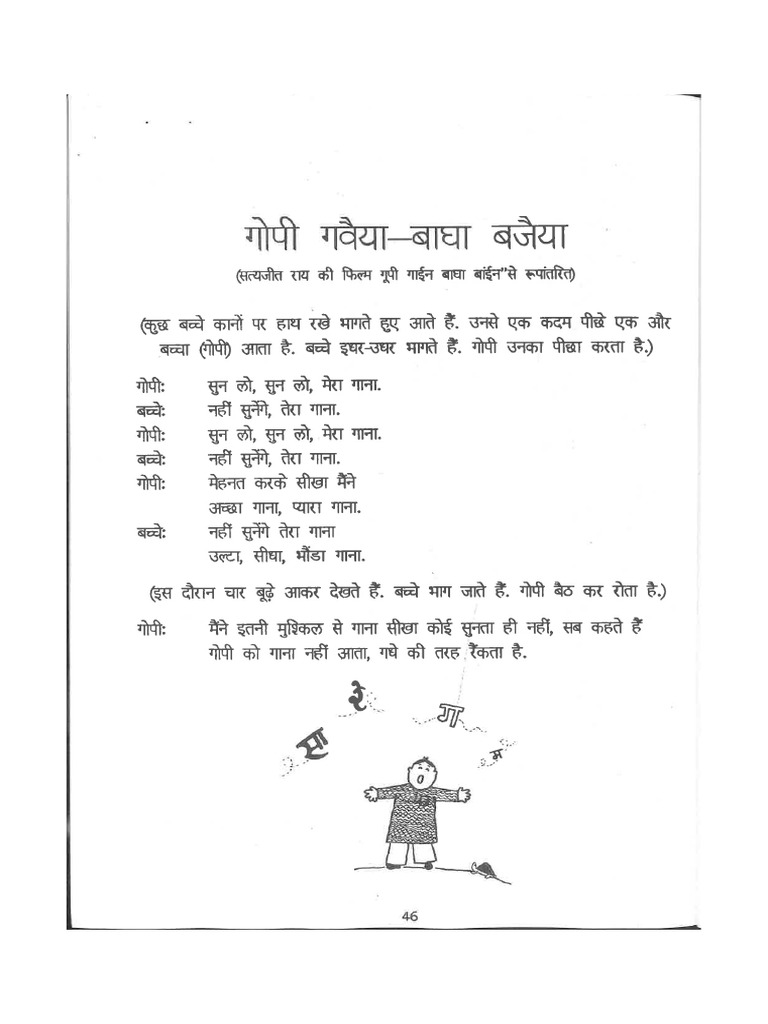 गोपी गवैया–बाघा बजैया
(सत्यजीत राय की फिल्म गूपी गाईन बाघा बांईन"से रूपांतरित)
(कुछ बच्चे कानों पर हाथ रखे भागते हुए आते हैं. उनसे एक कदम पीछे एक और
बच्चा (गोपी) आता है. बच्चे इधर-उधर भागते हैं. गोपी उनका पीछा करता है.)
गोपी: सुन लो, सुन लो, मेरा गाना.
बच्चे: नहीं सुनेंगे, तेरा गाना.
गोपी: सुन लो, सुन लो, मेरा गाना.
बच्चे: नहीं सुनेंगे, तेरा गाना.
गोपी: मेहनत करके सीखा मैंने
अच्छा गाना, प्यारा गाना.
बच्चे: नहीं सुनेंगे तेरा गाना
उल्टा, सीधा, भौंडा गाना.
(इस दौरान चार बूढ़े आकर देखते हैं. बच्चे भाग जाते हैं. गोपी बैठ कर रोता है.)
गोपी: मैंने इतनी मुश्किल से गाना सीखा कोई सुनता ही नहीं, सब कहते हैं
गोपी को गाना नहीं आता, गधे की तरह रैंकता है.
सा रे ग म
46